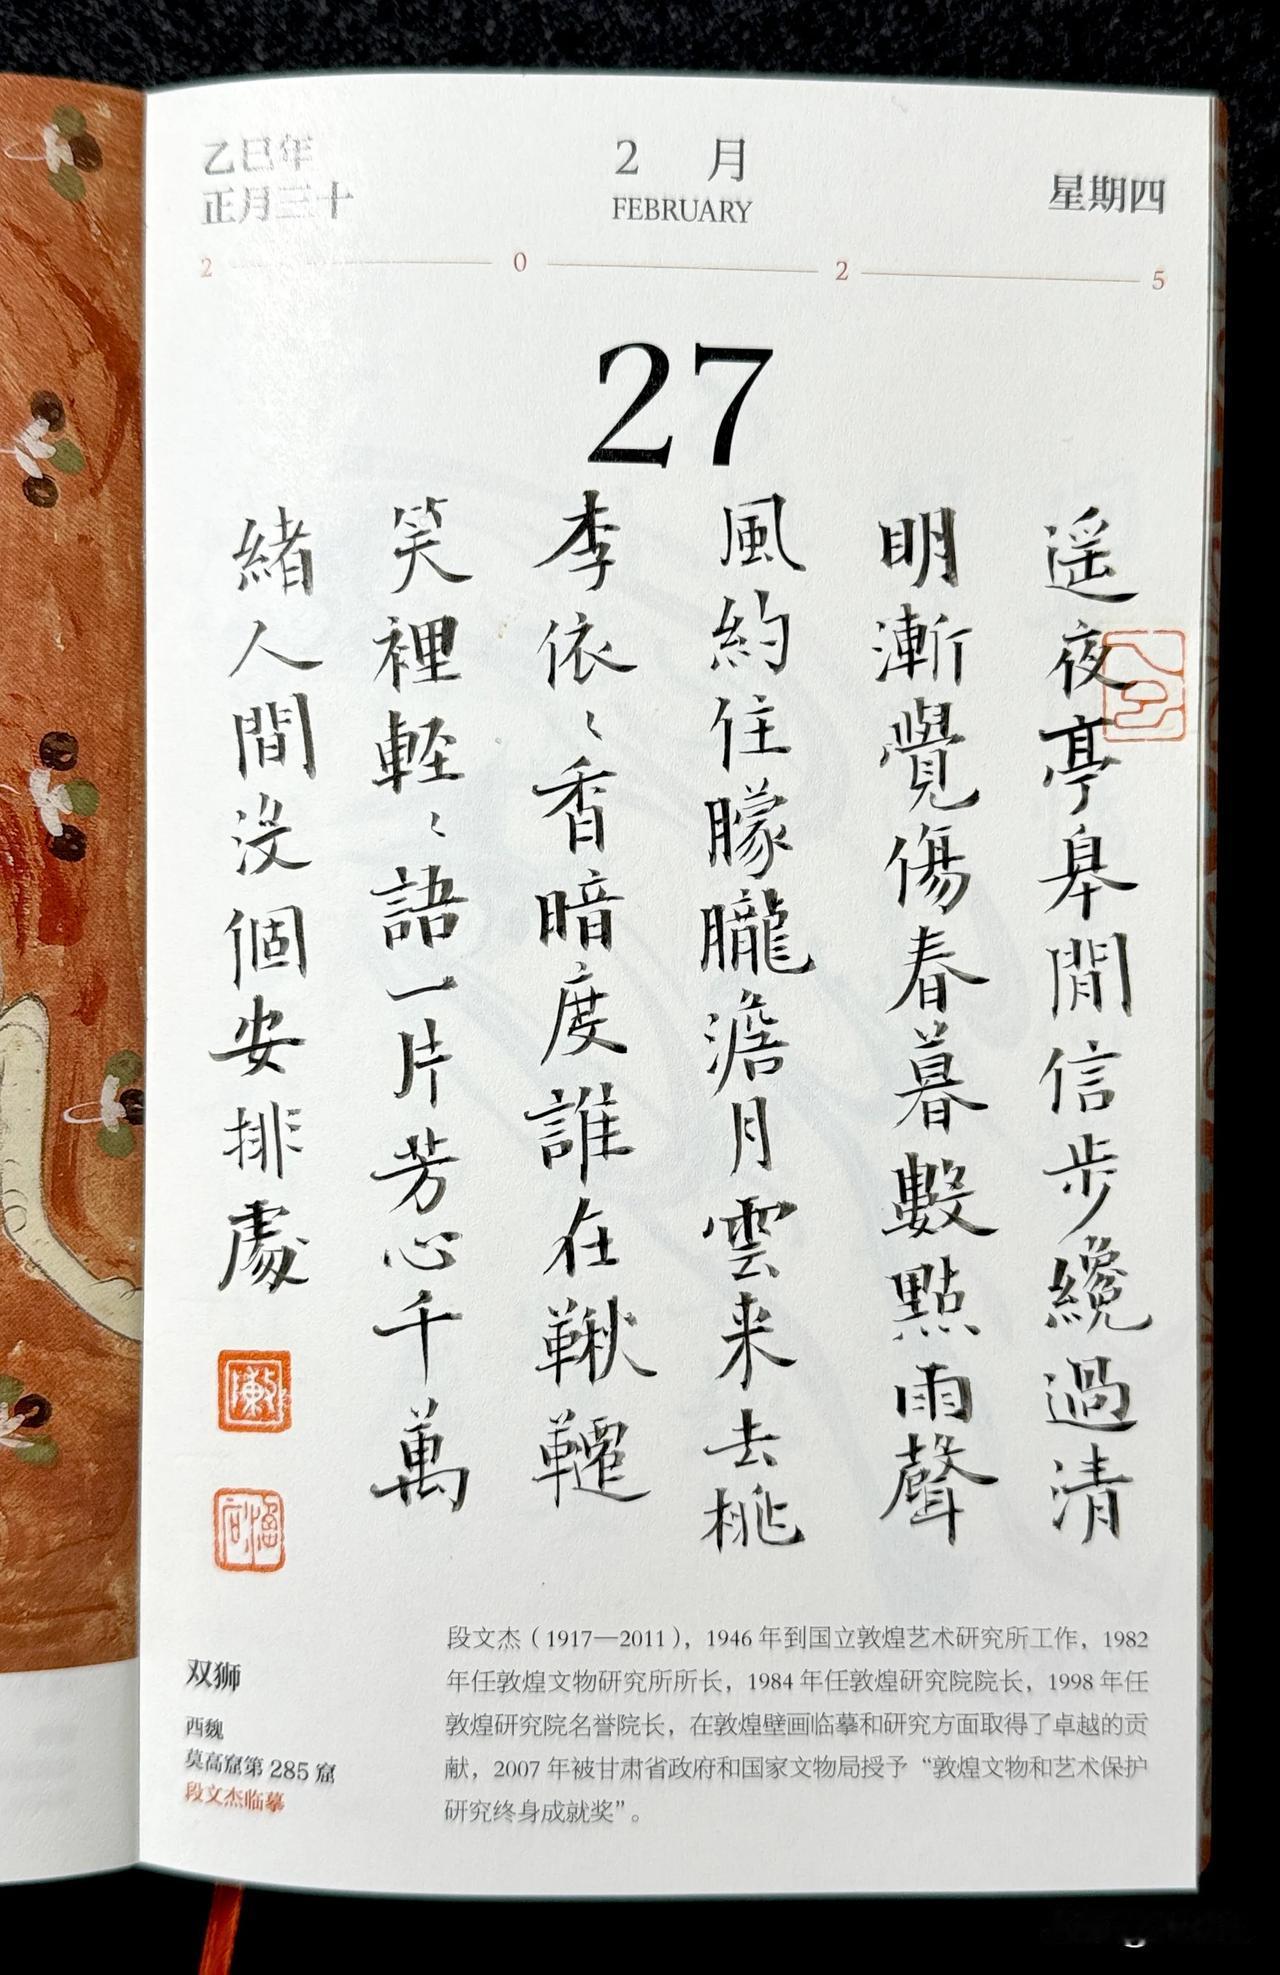 乙巳年
正月三十
2 月
FEBRUARY
星期四
2 0 2 5
27
遥夜亭皋閒信步纔過清
明漸覺傷春暮數點雨聲
風約住朦朧澹月雲来去桃
李依〻香暗度誰在鞦韆
笑裡輕〻語一片芳心千萬
緒人間沒個安排處
双狮
西魏
莫高窟第 285 窟
段文杰临摹
段文杰（1917—2011），1946 年到国立敦煌艺术研究所工作，1982
年任敦煌文物研究所所长，1984 年任敦煌研究院院长，1998 年任
敦煌研究院名誉院长，在敦煌壁画临摹和研究方面取得了卓越的贡
献，2007 年被甘肃省政府和国家文物局授予“敦煌文物和艺术保护
研究终身成就奖”。